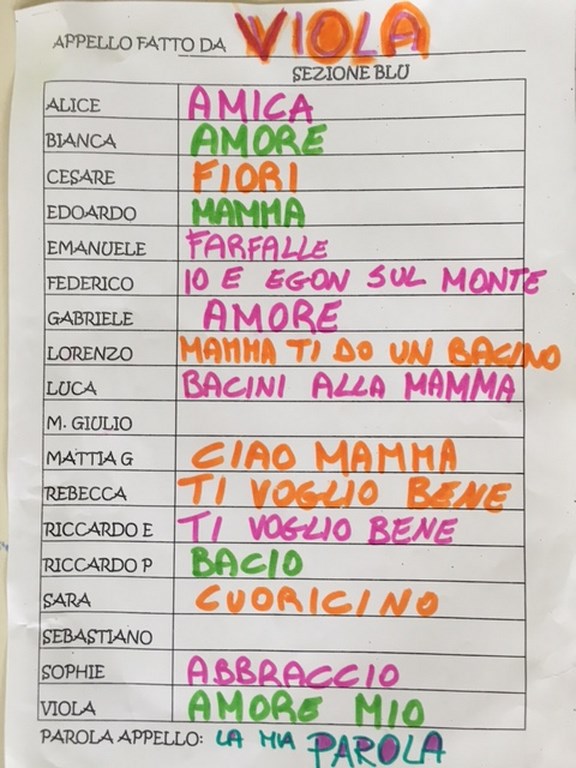 APPELLO FATTO DA VIOLA
SEZIONE BLU
ALICE AMICA
BIANCA AMORE
CESARE FIORI
EDOARDO MAMMA
EMANUELE FARFALLE
FEDERICO IO E EGON SUL MONTE
GABRIELE AMORE
LORENZO MAMMA TI DO UN BACINO
LUCA BACINI ALLA MAMMA
M. GIULIO
MATTIA G CIAO MAMMA
REBECCA TI VOGLIO BENE
RICCARDO E TI VOGLIO BENE
RICCARDO P BACIO
SARA CUORICINO
SEBASTIANO
SOPHIE ABBRACCIO
VIOLA AMORE MIO
PAROLA APPELLO: LA MIA PAROLA